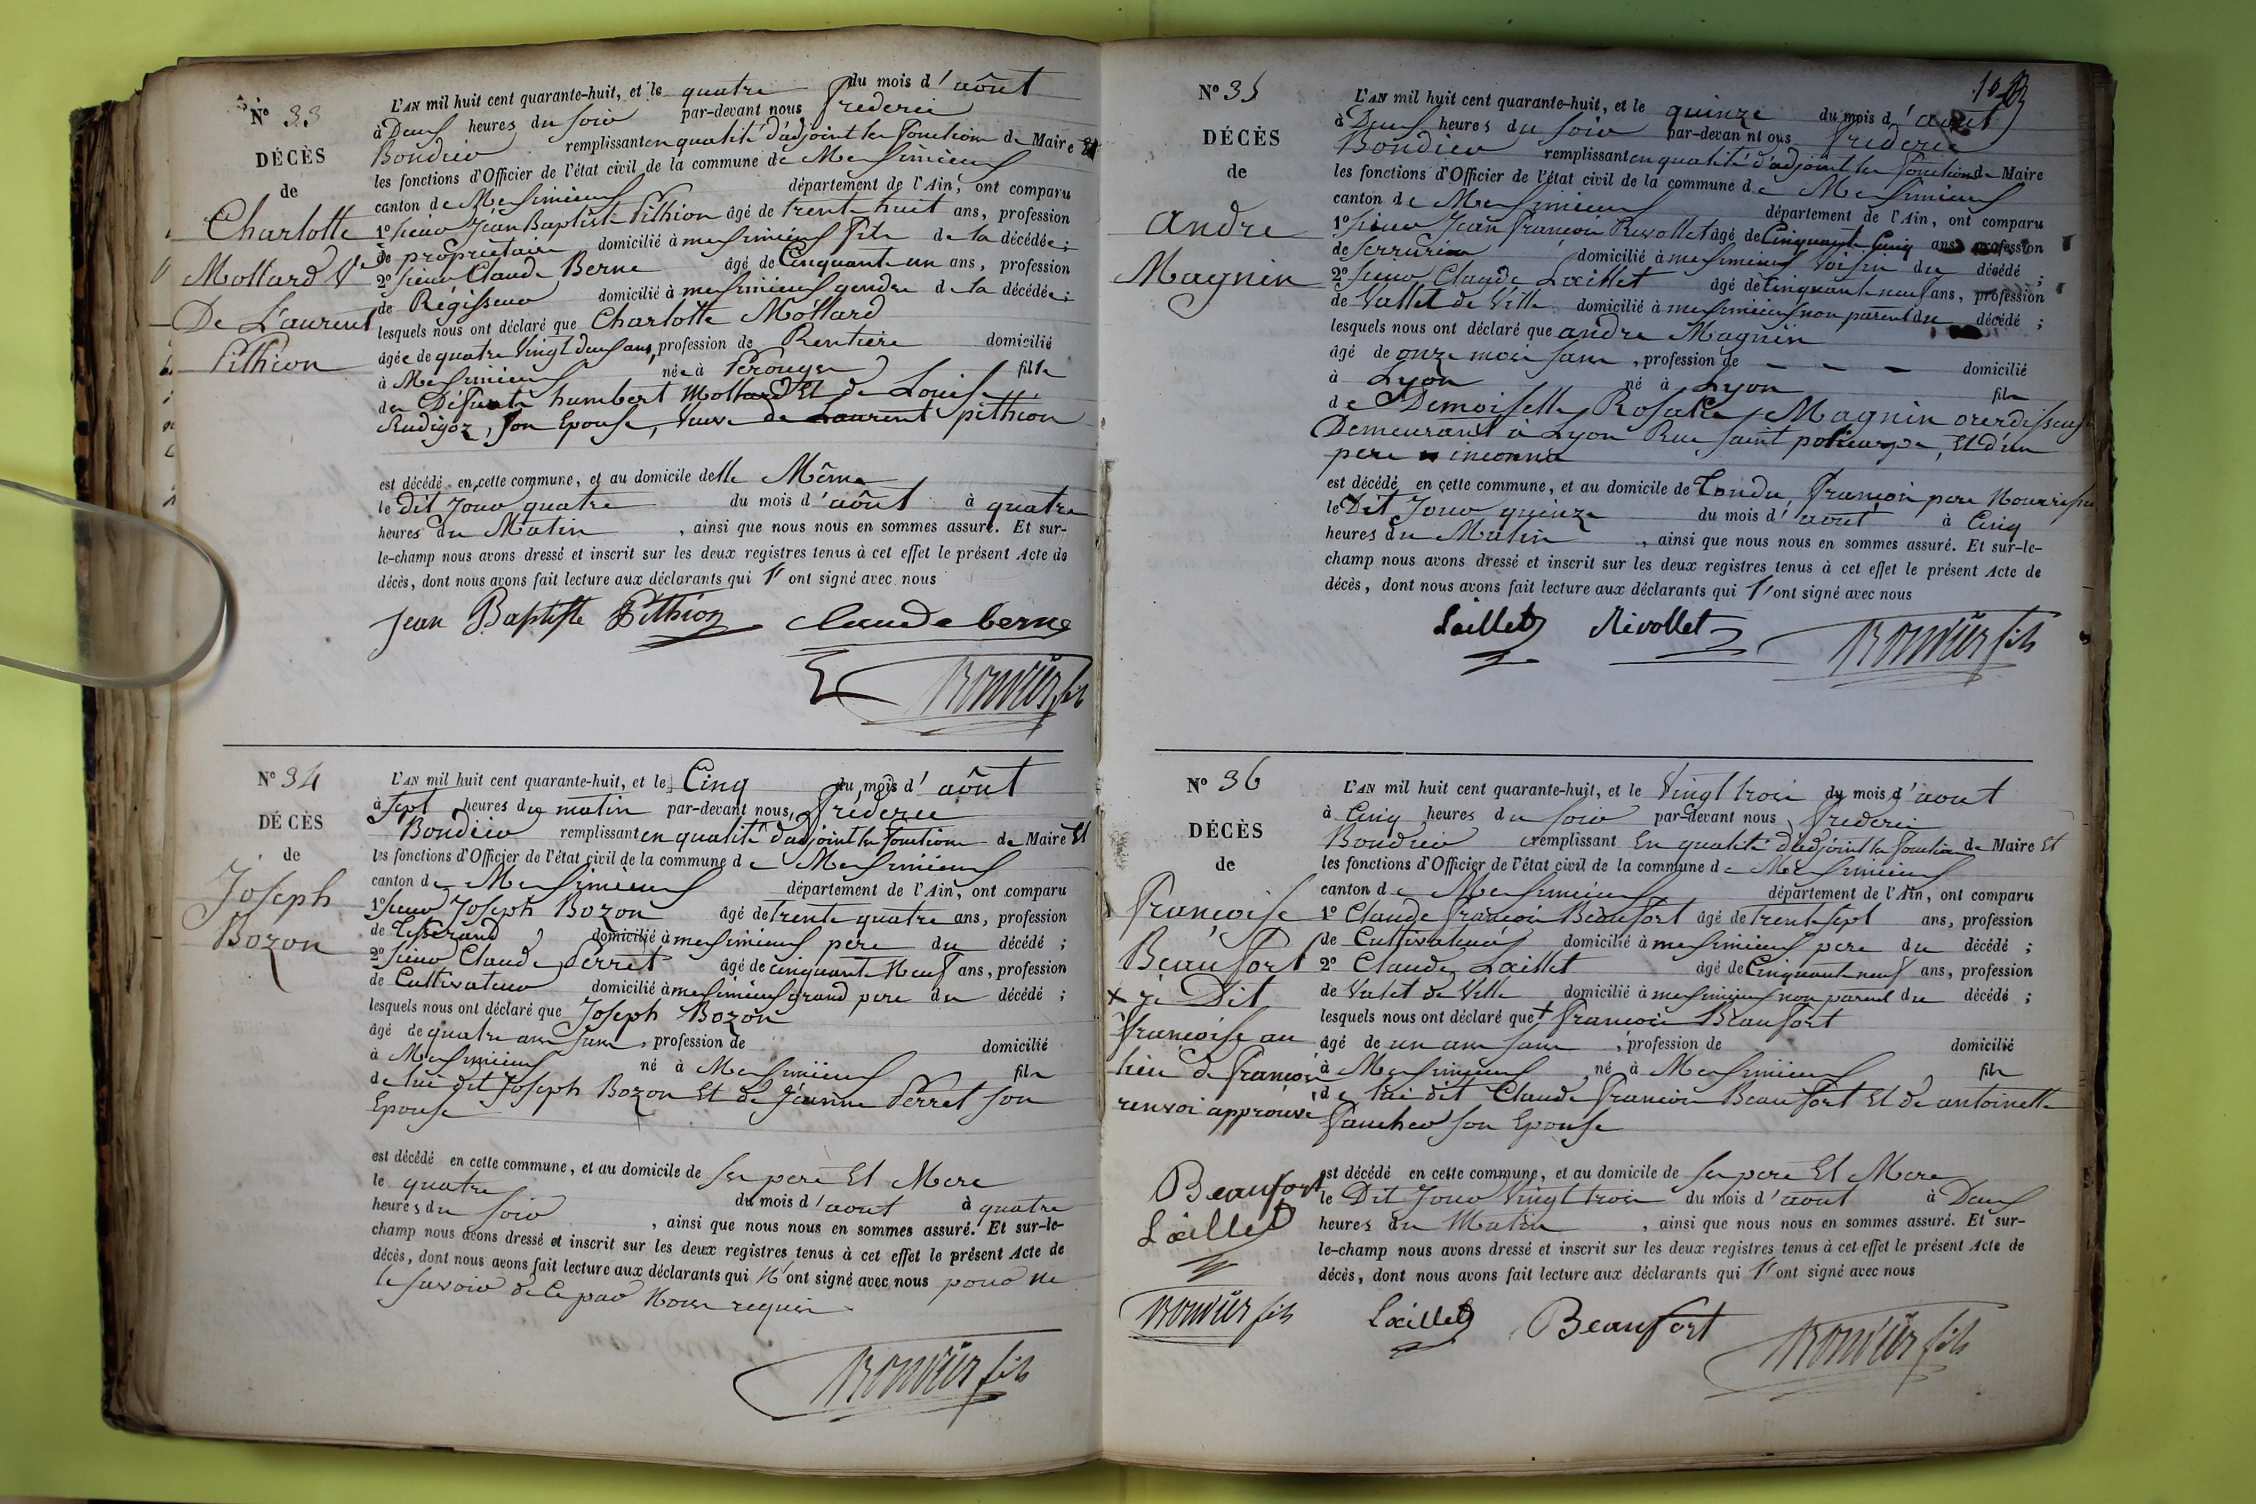 N° 33
DÉCÈS
de
Charlotte
Mottard Ve
De Laurent
Pithion
L'AN mil huit cent quarante-huit, et le quatre du mois d'août
à Deux heures du soir par-devant nous frederic
Bondieu remplissant en qualité d'adjoint les fonctions de Maire et
les fonctions d'Officier de l'état civil de la commune de Meximieux
canton de Meximieux département de l'Ain, ont comparu
1° sieur Jéan Baptiste Pithion âgé de trente huit ans, profession
de propriétaire domicilié à meximieux fils de la décédée;
2° sieur Claude Berne âgé de Cinquante un ans, profession
de Régisseur domicilié à meximieux gendre de la décédée;
lesquels nous ont déclaré que Charlotte Mottard
âgée de quatre vingt deux ans, profession de Rentiere domicilié
à Meximieux née à Perouges fille
des Défunts humbert Mottard Et de Louise
Rudigoz, son Epouse, veuve de Laurent pithion
est décédé en cette commune, et au domicile delle Même
le Dit Jour quatre du mois d'août à quatre
heures du Matin , ainsi que nous nous en sommes assuré. Et sur-
le-champ nous avons dressé et inscrit sur les deux registres tenus à cet effet le présent Acte de
décès, dont nous avons fait lecture aux déclarants qui l'ont signé avec nous
Jean Baptiste Pithion Claude berne
N° 34
DÉCÈS
de
Joseph
Bozon
L'AN mil huit cent quarante-huit, et le Cinq du mois d'août
à sept heures du matin par-devant nous, fréderic
Bondieu remplissant en qualité d'adjoint les fonctions de Maire Et
les fonctions d'Officier de l'état civil de la commune de Meximieux
canton de Meximieux département de l'Ain, ont comparu
1° sieur Joseph Bozon âgé de trente quatre ans, profession
de tisserand, domicilié à meximieux pere du décédé;
2° sieur Claude Perret âgé de cinquante Neuf ans, profession
de Cultivateur domicilié à meximieux grand pere du décédé;
lesquels nous ont déclaré que Joseph Bozon
âgé de quatre ans , profession de domicilié
à Meximieux né à Meximieux fils
de lui dit Joseph Bozon Et de Jéanne Perret son
Epouse
est décédé en cette commune, et au domicile de ses pere Et Mere
le quatre du mois d'août à quatre
heures du soir , ainsi que nous nous en sommes assuré. Et sur-le-
champ nous avons dressé et inscrit sur les deux registres tenus à cet effet le présent Acte de
décès, dont nous avons fait lecture aux déclarants qui N'ont signé avec nous pour ne
le savoir de ce par Nous requis
N° 35
DÉCÈS
de
andre
Magnin
L'AN mil huit cent quarante-huit, et le quinze du mois d'août
à Deux heures du soir par-devant nous frederic
Bondieu remplissant en qualité d'adjoint les fonctions de Maire
les fonctions d'Officier de l'état civil de la commune de Meximieux
canton de Meximieux département de l'Ain, ont comparu
1° sieur Jean françois Rivollet âgé de Cinquante Cinq ans profession
de serrurier domicilié à meximieux voisin du décédé;
2° sieur Claude Laillet âgé de Cinquante neuf ans, profession
de Vallet de Ville domicilié à meximieux non parent du décédé;
lesquels nous ont déclaré que andre Magnin
âgé de onze mois , profession de — — — domicilié
à Lyon né à Lyon fils
de Demoiselle Rosalie Magnin
Demeurant à Lyon Rue saint policarpe, Et d'un
pere inconnu
est décédé en cette commune, et au domicile de Tondu françois pere Nourricier
le Dit Jour quinze du mois d'août à Cinq
heures du Matin , ainsi que nous nous en sommes assuré. Et sur-le-
champ nous avons dressé et inscrit sur les deux registres tenus à cet effet le présent Acte de
décès, dont nous avons fait lecture aux déclarants qui l'ont signé avec nous
Laillet Rivollet
N° 36
DÉCÈS
de
françoise
Beaufort
+ je Dit
françoise au
lieu de françois
renvoi approuvé
Beaufort
Laillet
L'AN mil huit cent quarante-huit, et le Vingt trois du mois d'août
à Cinq heures du soir par-devant nous frederic
Bondieu remplissant En qualité d'adjoint les fonctions de Maire Et
les fonctions d'Officier de l'état civil de la commune de Meximieux
canton de Meximieux département de l'Ain, ont comparu
1° Claude françois Beaufort âgé de trente sept ans, profession
de Cultivateur domicilié à meximieux pere du décédé;
2° Claude Laillet âgé de Cinquante neuf ans, profession
de Valet de Ville domicilié à meximieux non parent du décédé;
lesquels nous ont déclaré que + francois Beaufort
âgé de un ans , profession de domicilié
à Meximieux né à Meximieux fils
de lui dit Claude francois Beaufort Et de antoinette
son Epouse
est décédé en cette commune, et au domicile de ses pere Et Mere
le Dit Jour Vingt trois du mois d'août à Deux
heures du Matin , ainsi que nous nous en sommes assuré. Et sur-
le-champ nous avons dressé et inscrit sur les deux registres tenus à cet effet le présent Acte de
décès, dont nous avons fait lecture aux déclarants qui l'ont signé avec nous
Laillet Beaufort